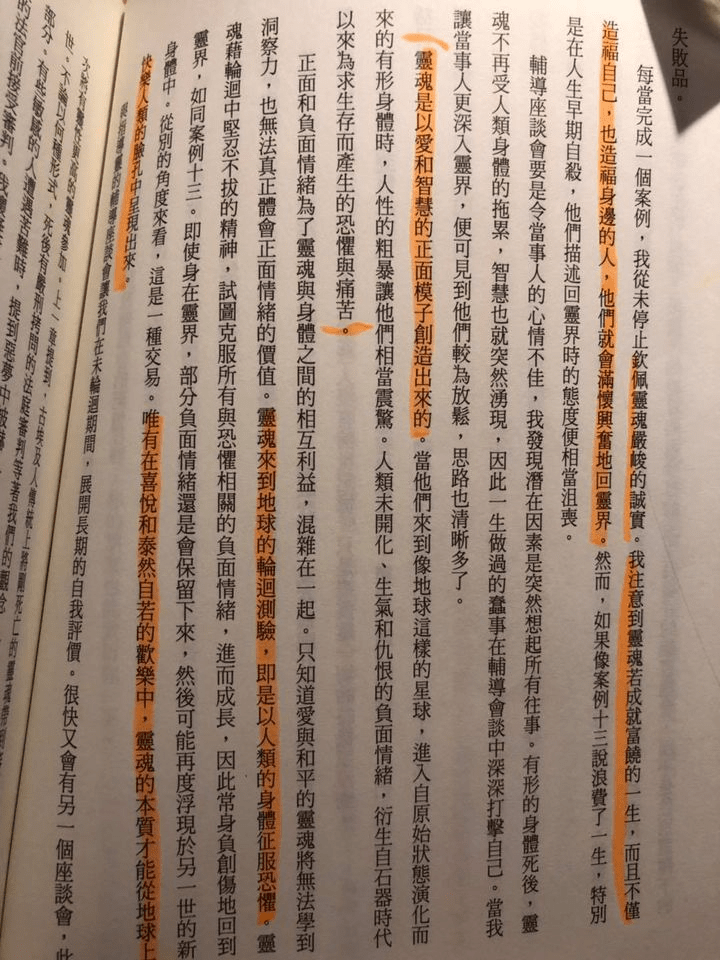 失敗品。
每當完成一個案例，我從未停止欽佩靈魂嚴峻的誠實。我注意到靈魂若成就富饒的一生，而且不僅
造福自己，也造福身邊的人，他們就會滿懷興奮地回靈界。然而，如果像案例十三說浪費了一生，特別
是在人生早期自殺，他們描述回靈界時的態度便相當沮喪。
輔導座談會要是令當事人的心情不佳，我發現潛在因素是突然想起所有往事。有形的身體死後，靈
魂不再受人類身體的拖累，智慧也就突然湧現，因此一生做過的蠢事在輔導會談中深深打擊自己。當我
讓當事人更深入靈界，便可見到他們較為放鬆，思路也清晰多了。
靈魂是以愛和智慧的正面模子創造出來的。當他們來到像地球這樣的星球，進入自原始狀態演化而
來的有形身體時，人性的粗暴讓他們相當震驚。人類未開化、生氣和仇恨的負面情緒，衍生自石器時代
以來為求生存而產生的恐懼與痛苦。
正面和負面情緒為了靈魂與身體之間的相互利益，混雜在一起。只知道愛與和平的靈魂將無法學到
洞察力，也無法真正體會正面情緒的價值。靈魂來到地球的輪迴測驗，即是以人類的身體征服恐懼。靈
魂藉輪迴中堅忍不拔的精神，試圖克服所有與恐懼相關的負面情緒，進而成長，因此常身負創傷地回到
靈界，如同案例十三。即使身在靈界，部分負面情緒還是會保留下來，然後可能再度浮現於另一世的新
身體中。從別的角度來看，這是一種交易。唯有在喜悅和泰然自若的歡樂中，靈魂的本質才能從地球上
快樂人類的臉孔中呈現出來。
與指導靈的輔導座談會讓我們在未輪迴期間，展開長期的自我評價。很快又會有另一個座談會，此
參加。上一章提到，古埃及人傳統上將剛死亡的靈魂帶到
世。不論以何種形式，死後有嚴刑拷問的法庭審判等著我們的觀念
部分。有些敏感的人遭遇苦難時，提到惡夢中被嚇
的法官前接受審判。我